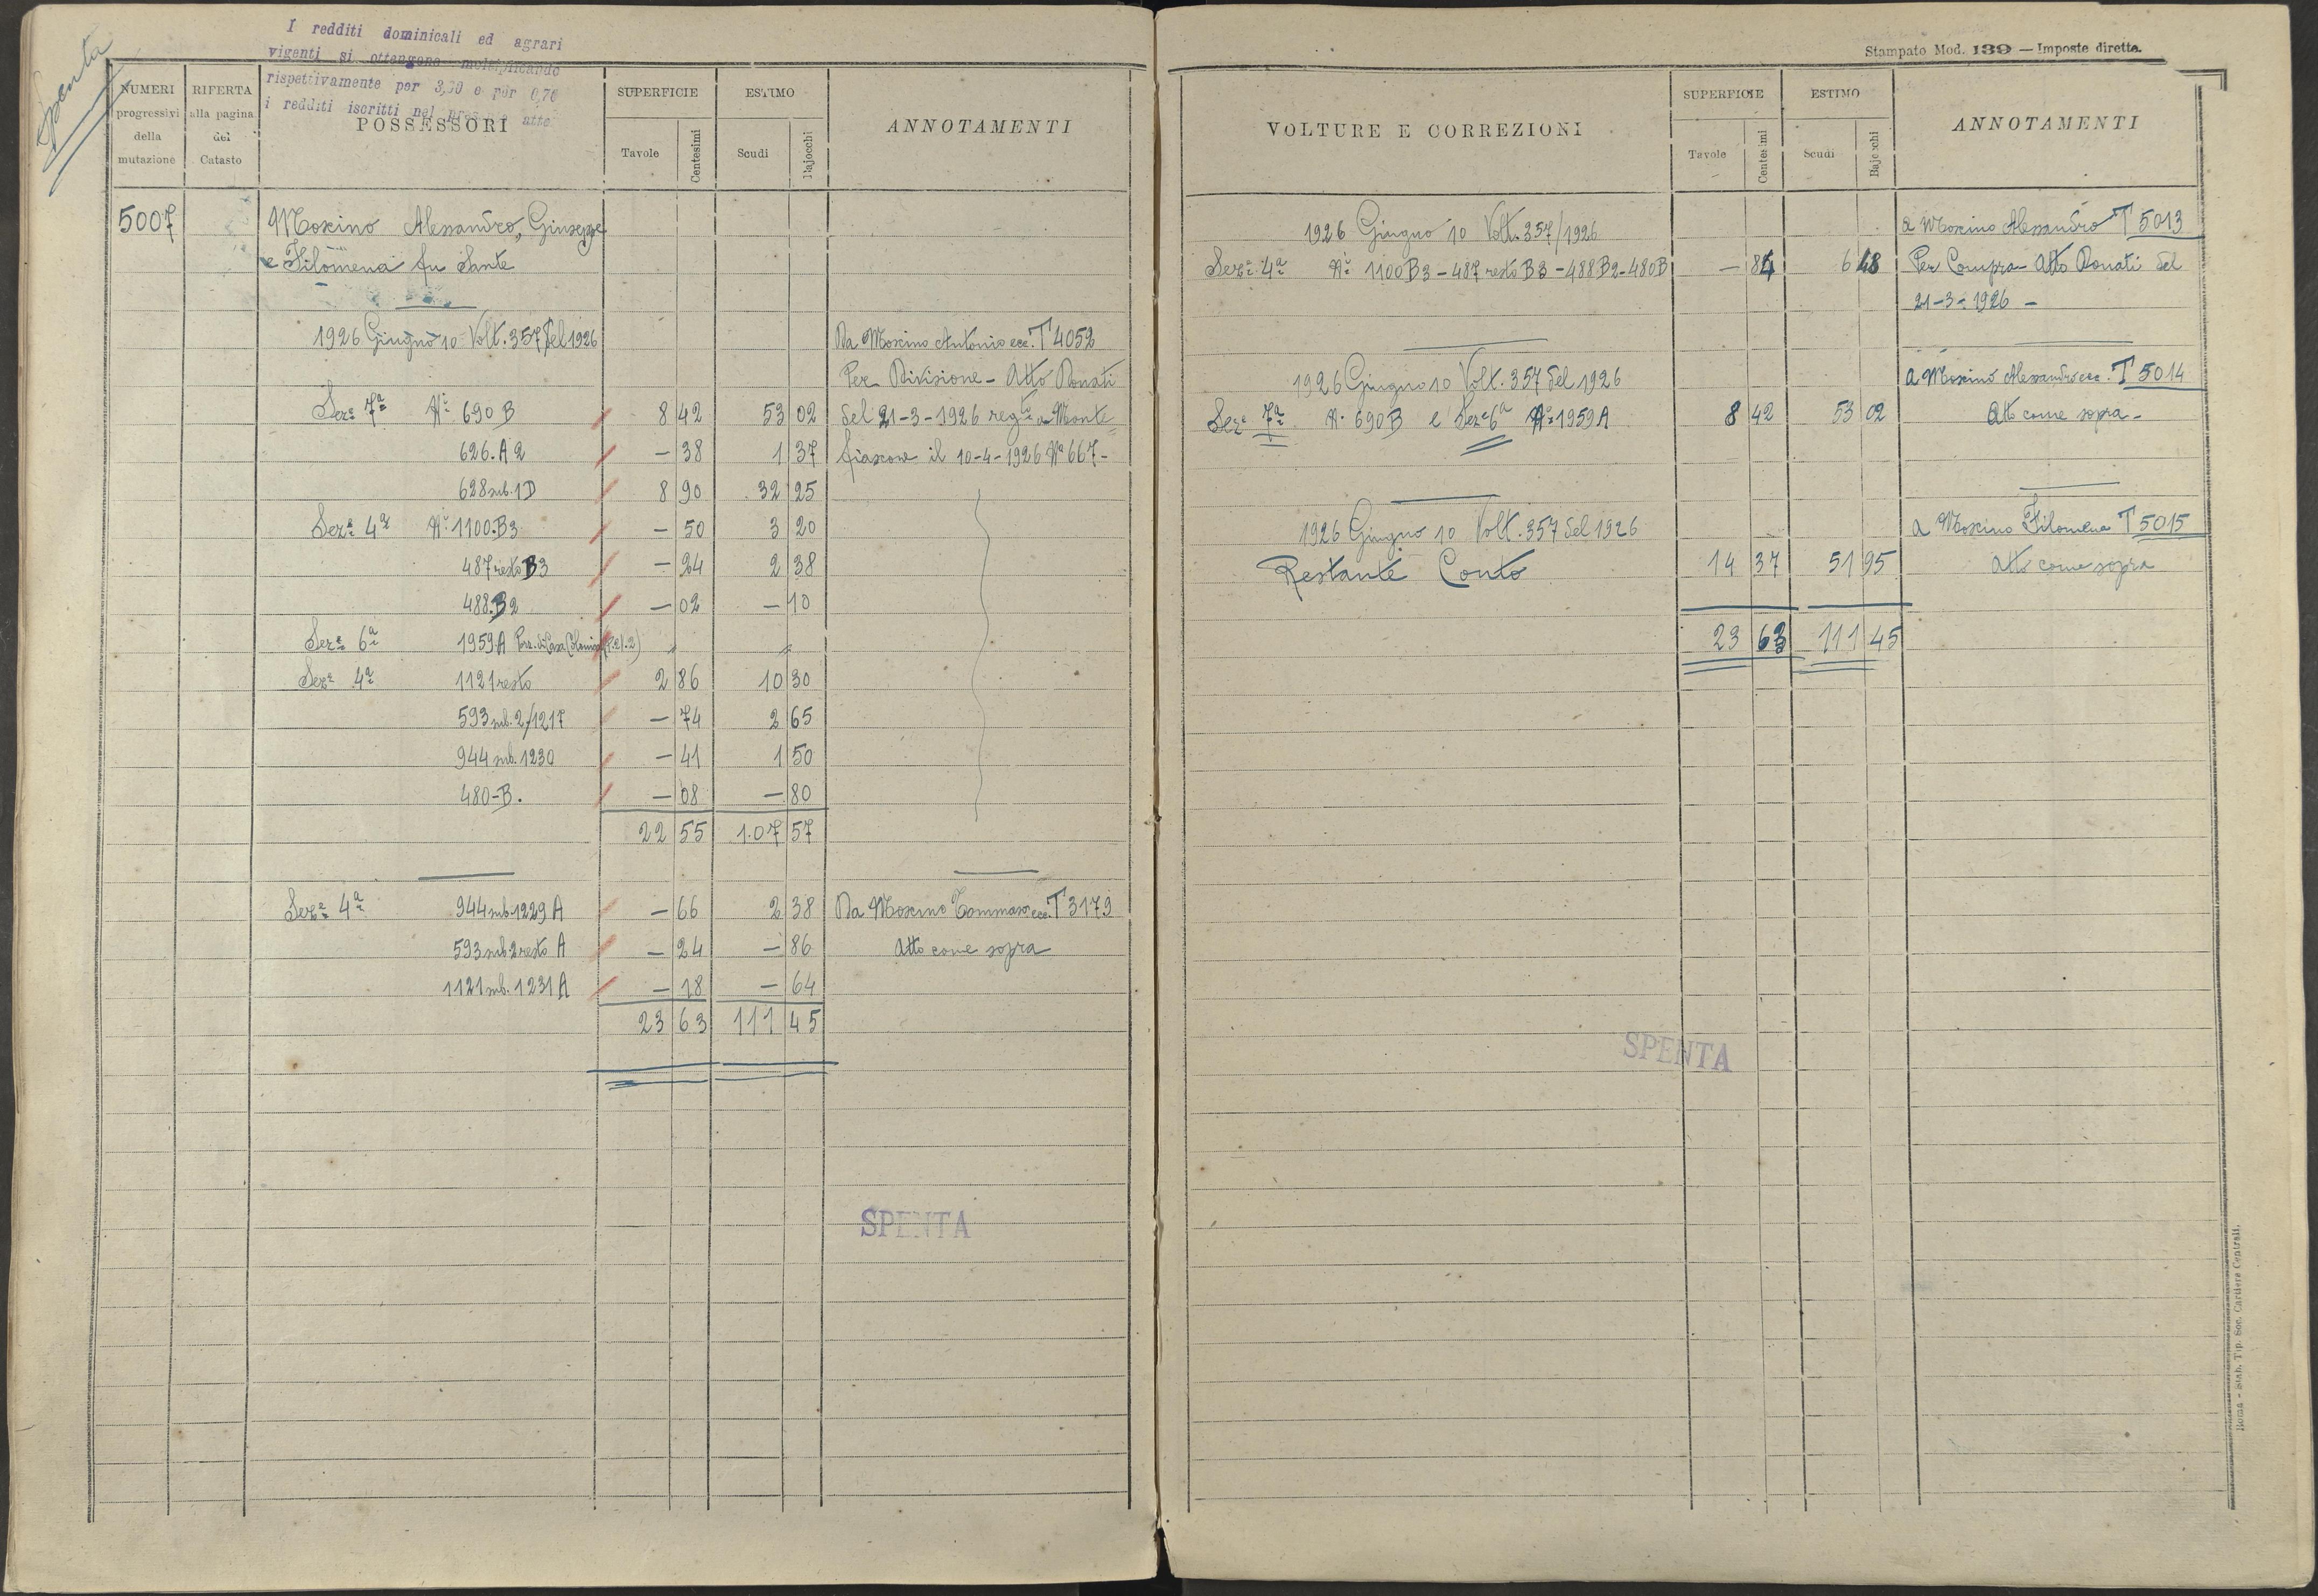 Spenta
I redditi dominicali ed agrari
vigenti si ottengono moltiplicando
rispettivamente per 3,30 e per 0,70
i redditi iscritti nel
NUMERI progressivi della mutazione
RIFERTA alla pagina del Catasto
POSSESSORI
SUPERFICIE Tavole Centesimi
ESTIMO Scudi Bajocchi
ANNOTAMENTI
5007 Moscino Alessandro, Giuseppe
e Filomena fu Sante
1926 Giugno 10 Volt. 357 del 1926 Da Moscino Antonio ecc. T 4052
Per Divisione - Atto Donati
Sez.e 7a No 690 B 8 42 53 02 del 21-3-1926 reg.to a Monte=
626. A 2 — 38 1 37 fiascone il 10-4-1926 No 667-
628 sub. 1 D 8 90 32 25
Sez.e 4a No 1100. B3 — 50 3 20
487 resto B3 — 24 2 38
488. B2 — 02 — 10
Sez.e 6a 1959 A Porz. di Casa Colonica (P. 2/. 2) " "
Sez.e 4a 1121 resto 2 86 10 30
593 sub. 2/1217 — 74 2 65
944 sub. 1230 — 41 1 50
480-B. — 08 — 80
22 55 107 57
Sez.e 4a 944 sub. 1229 A — 66 2 38 Da Moscino Tommaso ecc. T 3179
593 sub 2 resto A — 24 — 86 Atto come sopra
1121 sub. 1231 A — 18 — 64
23 63 111 45
SPENTA
Stampato Mod. 139 — Imposte dirette.
VOLTURE E CORREZIONI
SUPERFICIE Tavole Centesimi
ESTIMO Scudi Bajocchi
ANNOTAMENTI
1926 Giugno 10 Volt. 357/1926 a Moscino Alessandro T 5013
Sez.e 4a No 1100 B3 - 487 resto B3 - 488 B2 - 480 B — 84 6 48 Per Compra - Atto Donati del
21-3-1926 -
1926 Giugno 10 Volt. 357 del 1926 a Moscino Alessandro ecc. T 5014
Sez.e 7a No 690 B e Sez.e 6a No 1959 A 8 42 53 02 Atto come sopra -
1926 Giugno 10 Volt. 357 del 1926 a Moscino Filomena T 5015
Restante Conto 14 37 51 95 Atto come sopra
23 63 111 45
SPENTA
Roma - Stab. Tip. Soc. Cartiere Centrali.